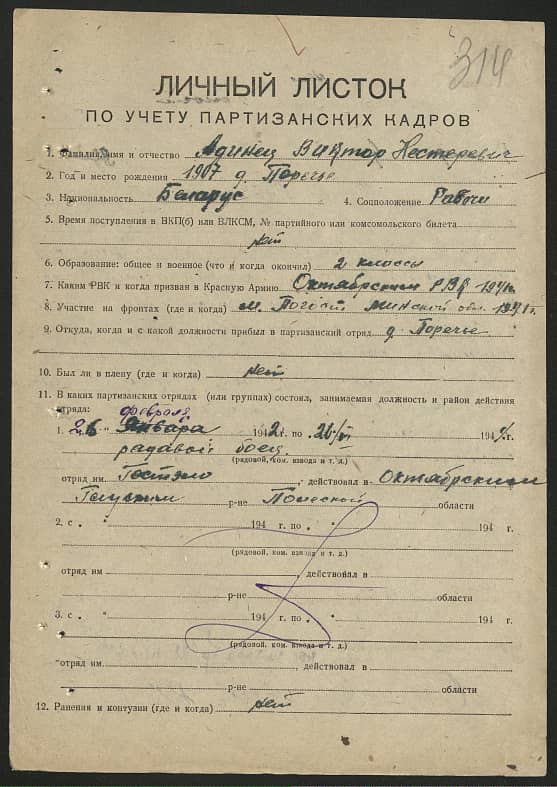 314
ЛИЧНЫЙ ЛИСТОК
ПО УЧЕТУ ПАРТИЗАНСКИХ КАДРОВ
1. Фамилия, имя и отчество Адинец Виктор Нестеревич
2. Год и место рождения 1907 д. Поречье
3. Национальность Беларус 4. Соцположение Рабочи
5. Время поступления в ВКП(б) или ВЛКСМ, № партийного или комсомольского билета
нет
6. Образование: общее и военное (что и когда окончил) 2 классы
7. Каким РВК и когда призван в Красную Армию Октябрьским РВК 1941г.
8. Участие на фронтах (где и когда) м. Погост Минской обл. 1941г.
9. Откуда, когда и с какой должности прибыл в партизанский отряд д. Поречье
10. Был ли в плену (где и когда) нет
11. В каких партизанских отрядах (или группах) состоял, занимаемая должность и район действия
отряда: февраля
1. 26 " Января 1942 г. по 26/VI 194 г.
радавой боец
(рядовой, ком. взвода и т. д.)
отряд им Гестэло, действовал в Октябрьским
р-не Полеской области
2. с " " 194 г. по " " 194 г.
(рядовой, ком. взвода и т. д.)
отряд им , действовал в
р-не области
3. с " " 194 г. по " " 194 г.
(рядовой, ком. взвода и т. д.)
отряд им. , действовал в
р-не области
12. Ранения и контузии (где и когда) нет